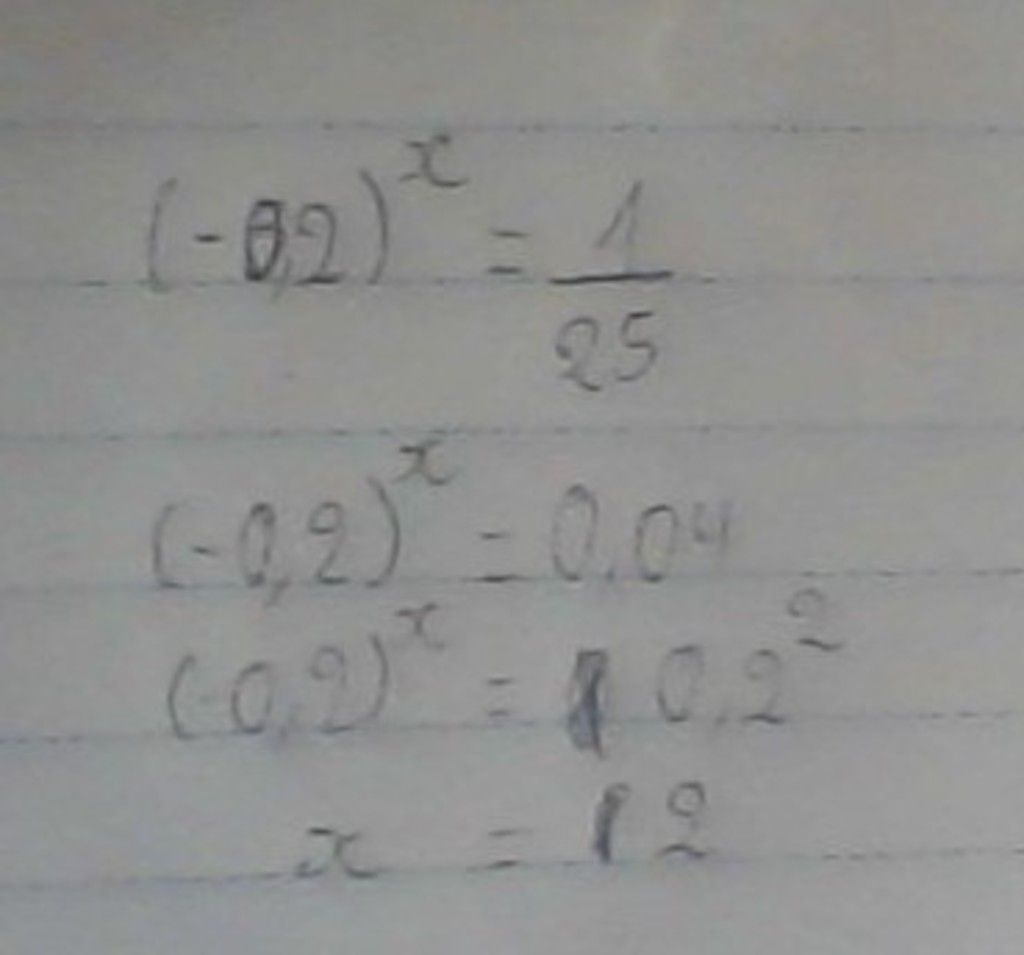 (-0,2)^x = 1/25
(-0,2)^x = 0.04
(-0,2)^x = 0.2^2
x = 2